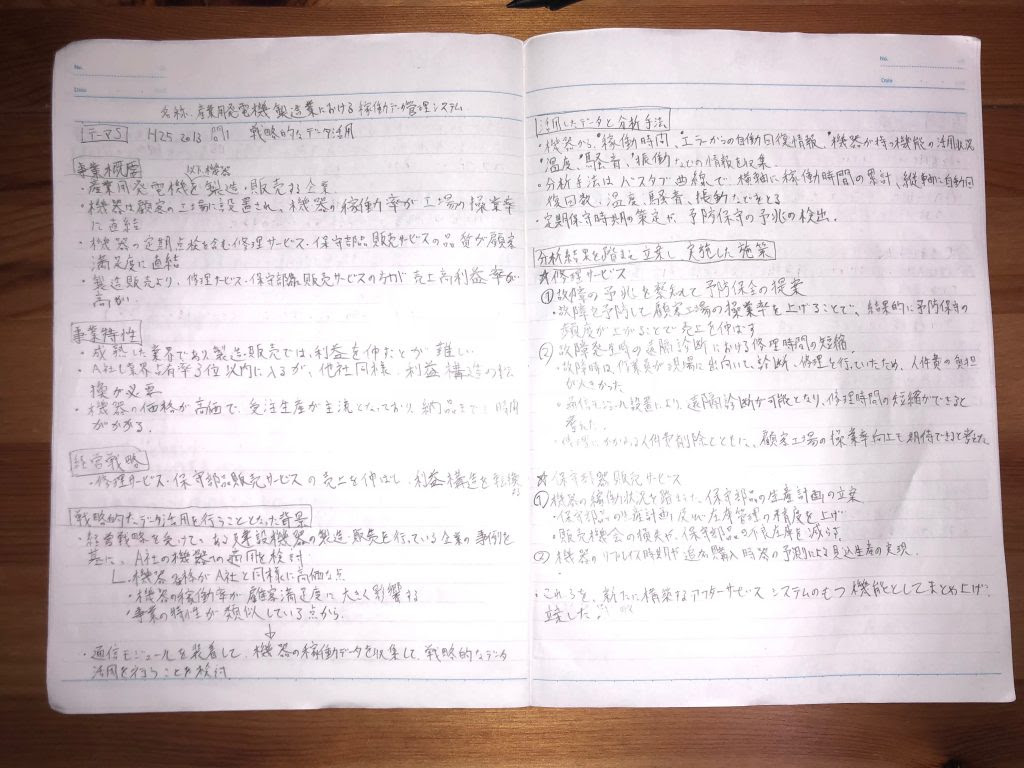 No.
Date
名称. 産業用発電機製造業における稼働データ管理システム
テーマS H25 2013 問1 戦略的なデータ活用
事業概要 以下、機器
・産業用発電機を製造・販売する企業
・機器は顧客の工場に設置され、機器の稼働率が工場の操業率
に直結
・機器の定期点検を含む修理サービス・保守部品販売サービスの品質が顧客
満足度に直結
・製造販売より、修理サービス・保守部品販売サービスの方が売上高利益率が
高い.
事業特性
・成熟した業界であり製造・販売では、利益を伸ばすことが難しい
・A社は業界占有率3位以内に入るが、他社同様、利益構造の転
換が必要
・機器の価格が高価で、受注生産が主流となっており、納品まで時間
がかかる.
経営戦略
・修理サービス・保守部品販売サービスの売上を伸ばし、利益構造を転換
戦略的なデータ活用を行うこととなった背景
・経営戦略を受けて、ある建設機器の製造・販売を行っている企業の事例を
基に、A社の機器への適用を検討
・機器価格がA社と同様に高価な点
・機器の稼働率が顧客満足度に大きく影響する
・事業の特性が類似している点から.
↓
・通信モジュールを装着して、機器の稼働データを収集して、戦略的なデータ
活用を行うことを検討
No.
Date
活用したデータと分析手法
・機器から、・稼働時間、・エラーからの自動回復情報、・機器が持つ機能の活用状況
・温度、・騒音、・振動などの情報を収集
・分析手法はバスタブ曲線で、横軸に稼働時間の累計、縦軸に自動回
復回数、温度、騒音、振動などをとる
・定期保守時期の策定や、予防保守の予兆の検出.
分析結果を踏まえ立案し実施した施策
☆修理サービス
①故障の予兆を捉えて予防保全の提案
・故障を予防して顧客工場の操業率を上げることで、結果的に予防保守の
頻度が上がることで売上を伸ばす
②故障発生時の遠隔診断における修理時間の短縮.
・故障時は、作業員が現場に出向いて、診断・修理を行っていたため、人件費の負担
が大きかった
・通信モジュール設置により、遠隔診断が可能となり、修理時間の短縮ができると
考えた.
・修理にかかる人件費削減とともに、顧客工場の操業率向上も期待できると考えた
☆保守部品販売サービス
①機器の稼働状況を踏まえた、保守部品の生産計画の立案
・保守部品の生産計画及び在庫管理の精度を上げ
・販売機会の損失や、保守部品の不良在庫を減らす
②機器のリプレイス時期や追加購入時器の予測による見込生産の実現.
・これらを、新たに構築するアフターサービスシステムのもつ機能としてまとめ上げ、
立案した.